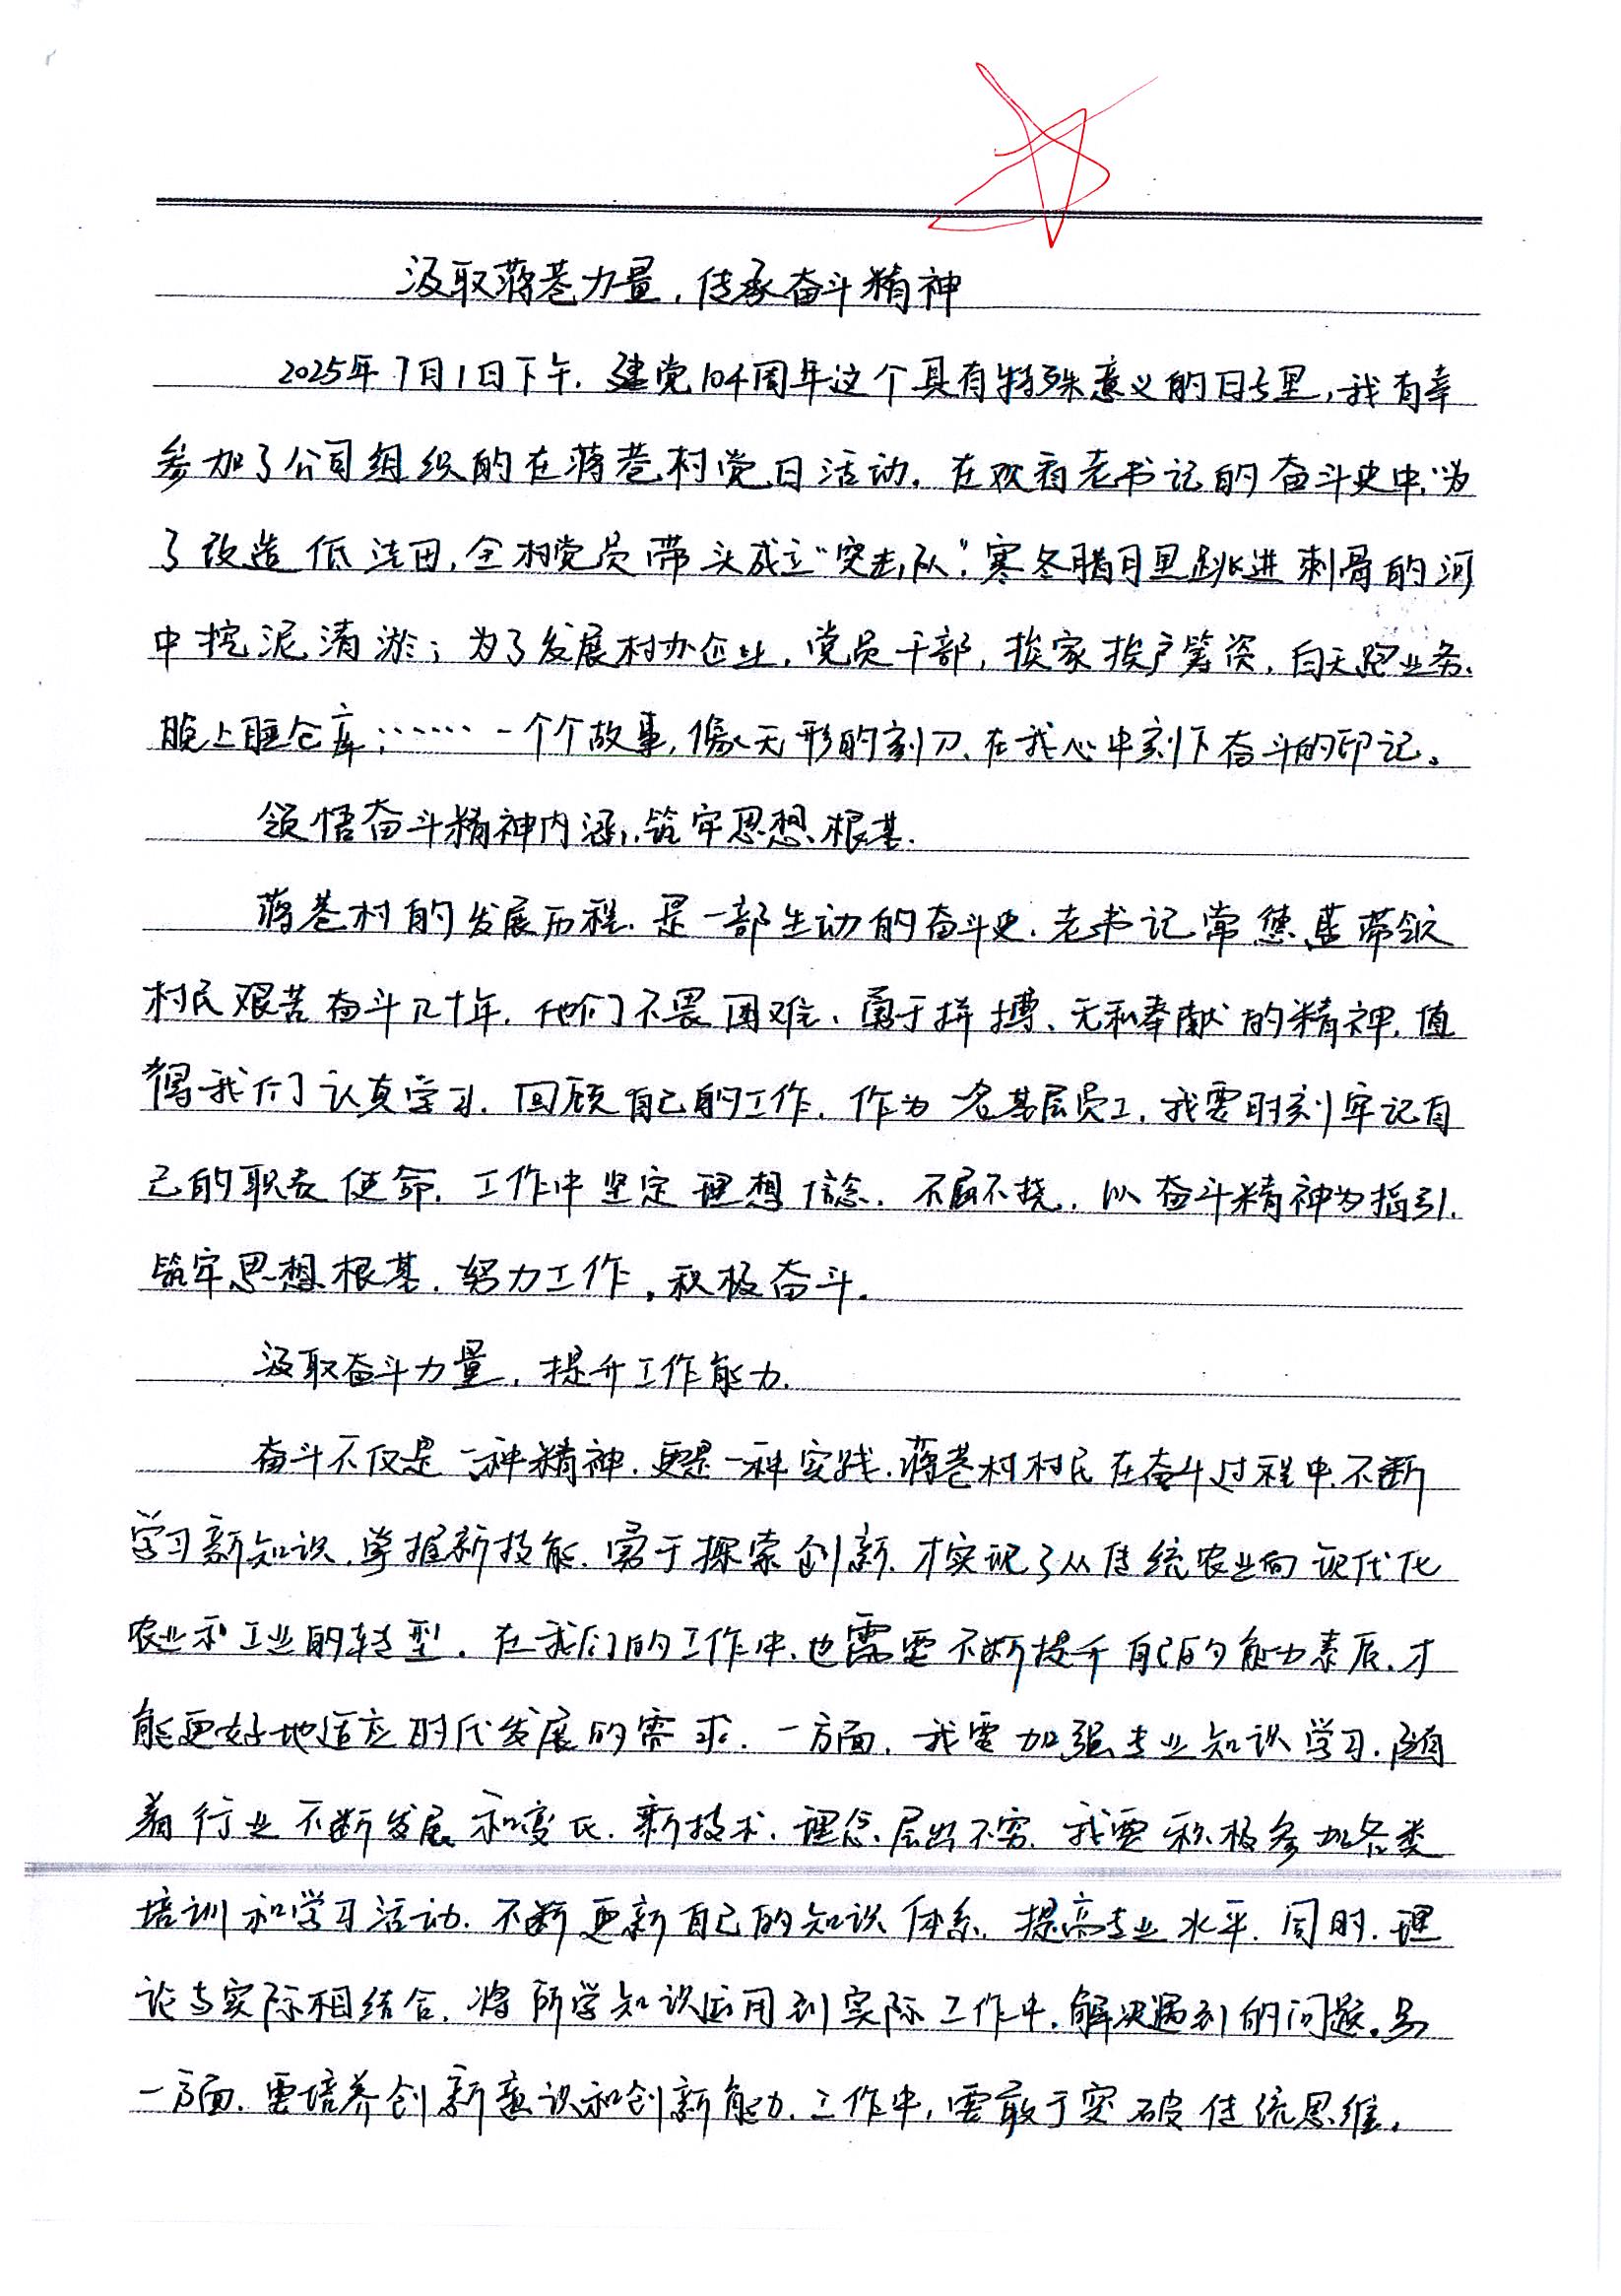 汲取蒋巷力量，传承奋斗精神
2025年7月1日下午，建党104周年这个具有特殊意义的日子里，我有幸
参加了公司组织的在蒋巷村党日活动。在观看老书记的奋斗史中，为
了改造低洼田，全村党员带头成立“突击队”，寒冬腊月里跳进刺骨的河
中挖泥清淤；为了发展村办企业，党员干部，挨家挨户筹资，白天跑业务、
晚上睡仓库；……一个个故事，像无形的刻刀、在我心中刻下奋斗的印记。
领悟奋斗精神内涵，筑牢思想根基.
蒋巷村的发展历程.是一部生动的奋斗史.老书记常德盛带领
村民艰苦奋斗几十年.他们不畏困难、勇于拼搏、无私奉献的精神.值
得我们认真学习.回顾自己的工作.作为一名基层员工.我要时刻牢记自
己的职责使命.工作中坚定理想信念.不屈不挠.以奋斗精神为指引.
筑牢思想根基.努力工作，积极奋斗。
汲取奋斗力量，提升工作能力.
奋斗不仅是一种精神.更是一种实践.蒋巷村村民在奋斗过程中.不断
学习新知识.掌握新技能.勇于探索创新.才实现了从传统农业向现代化
农业和工业的转型.在我们的工作中.也需要不断提升自己的能力素质.才
能更好地适应时代发展的需求.一方面.我要加强专业知识学习.随
着行业不断发展和变化.新技术.理念层出不穷.我要积极参加各类
培训和学习活动.不断更新自己的知识体系.提高专业水平.同时.理
论与实际相结合.将所学知识应用到实际工作中.解决遇到的问题。另
一方面.要培养创新意识和创新能力.工作中，要敢于突破传统思维，